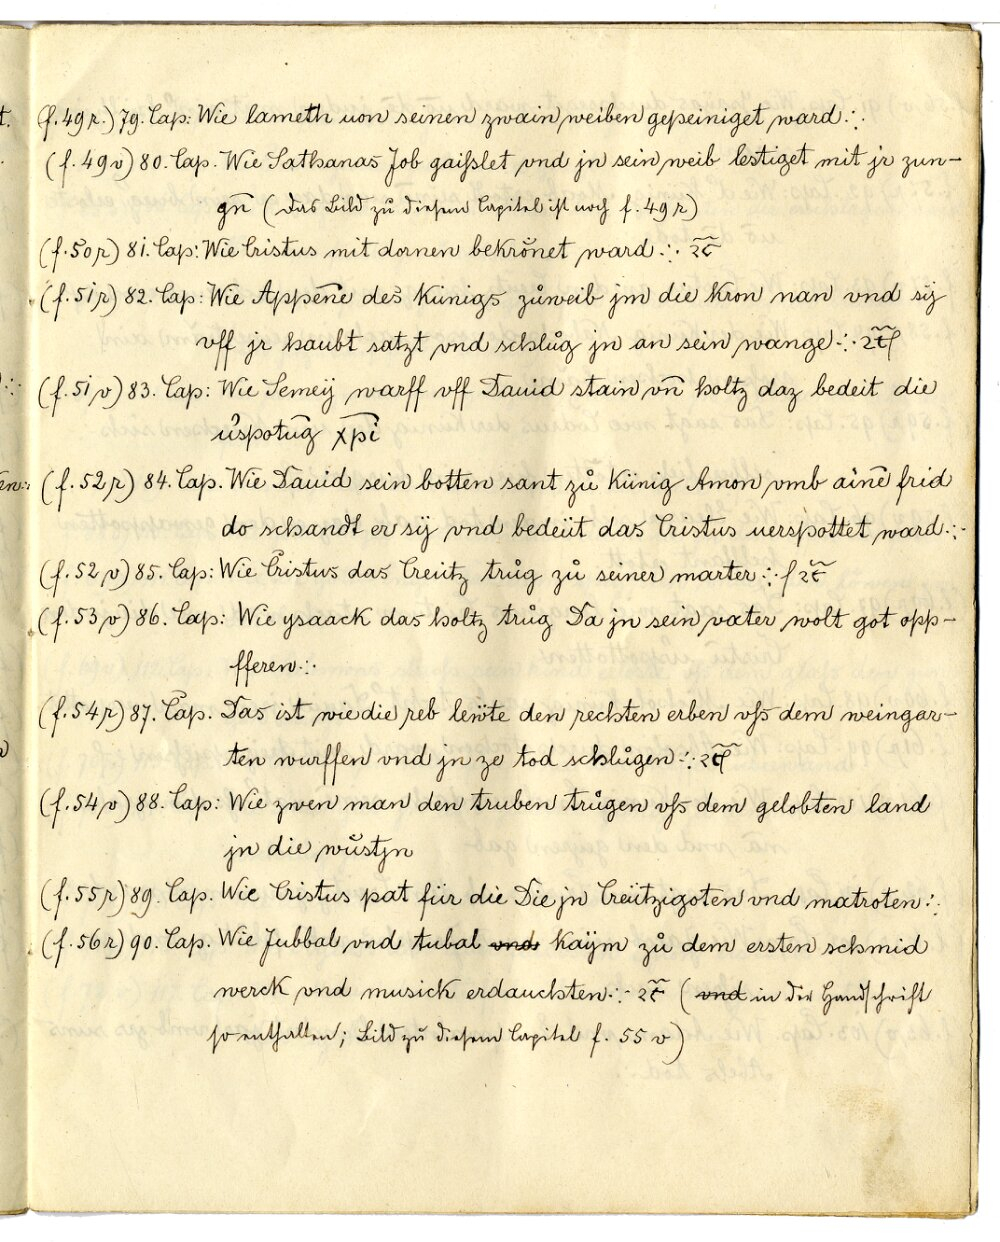 (f. 49 r.) 79. Cap: Wie lameth uon seinen zwain weiben gepeiniget ward ∴
(f. 49 v) 80. Cap. Wie Sathanas Job gaißlet vnd jn sein weib lestiget mit jr zun-
gn̄ (Das Bild zu diesem Capitel ist noch f. 49 r)
(f. 50 r) 81. Cap: Wie Cristus mit dornen bekrönet ward ∴
(f. 51 r) 82. Cap: Wie Appene̅ des Künigs zůweib jm die Kron nan vnd sij
vff jr haubt satzt vnd schlůg jn an sein wange ∴
(f. 51 v) 83. Cap: Wie Semeij warff vff Dauid stain vn̄ holtz daz bedeit die
xp̅i
(f. 52 r) 84. Cap. Wie Dauid sein botten sant zů Künig Amon vmb aine̅ frid
do schandt er sij vnd bedeüt das Cristus uerspottet ward ∴
(f. 52 v) 85. Cap: Wie Cristus das Creütz trůg zů seiner marter ∴
(f. 53 v) 86. Cap: Wie ysaack das holtz trůg Da jn sein vater wolt got opp-
fferen ∴
(f. 54 r) 87. Cap. Das ist wie die reb leẅte den rechten erben vſs dem weingar-
ten wurffen vnd jn ze tod schlůgen ∴
(f. 54 v) 88. Cap: Wie zwen man den truben trůgen vſs dem gelobten land
jn die wůstjn
(f. 55 r) 89. Cap. Wie Cristus pat für die Die jn Creützigoten vnd matroten ∴
(f. 56 r) 90. Cap. Wie Jubbal vnd tubal vnd Kaÿm zů dem ersten schmid
werck vnd musick erdauchten ∴ (vnd in der Handschrift
so enthalten; Bild zu diesem Capitel f. 55 v)